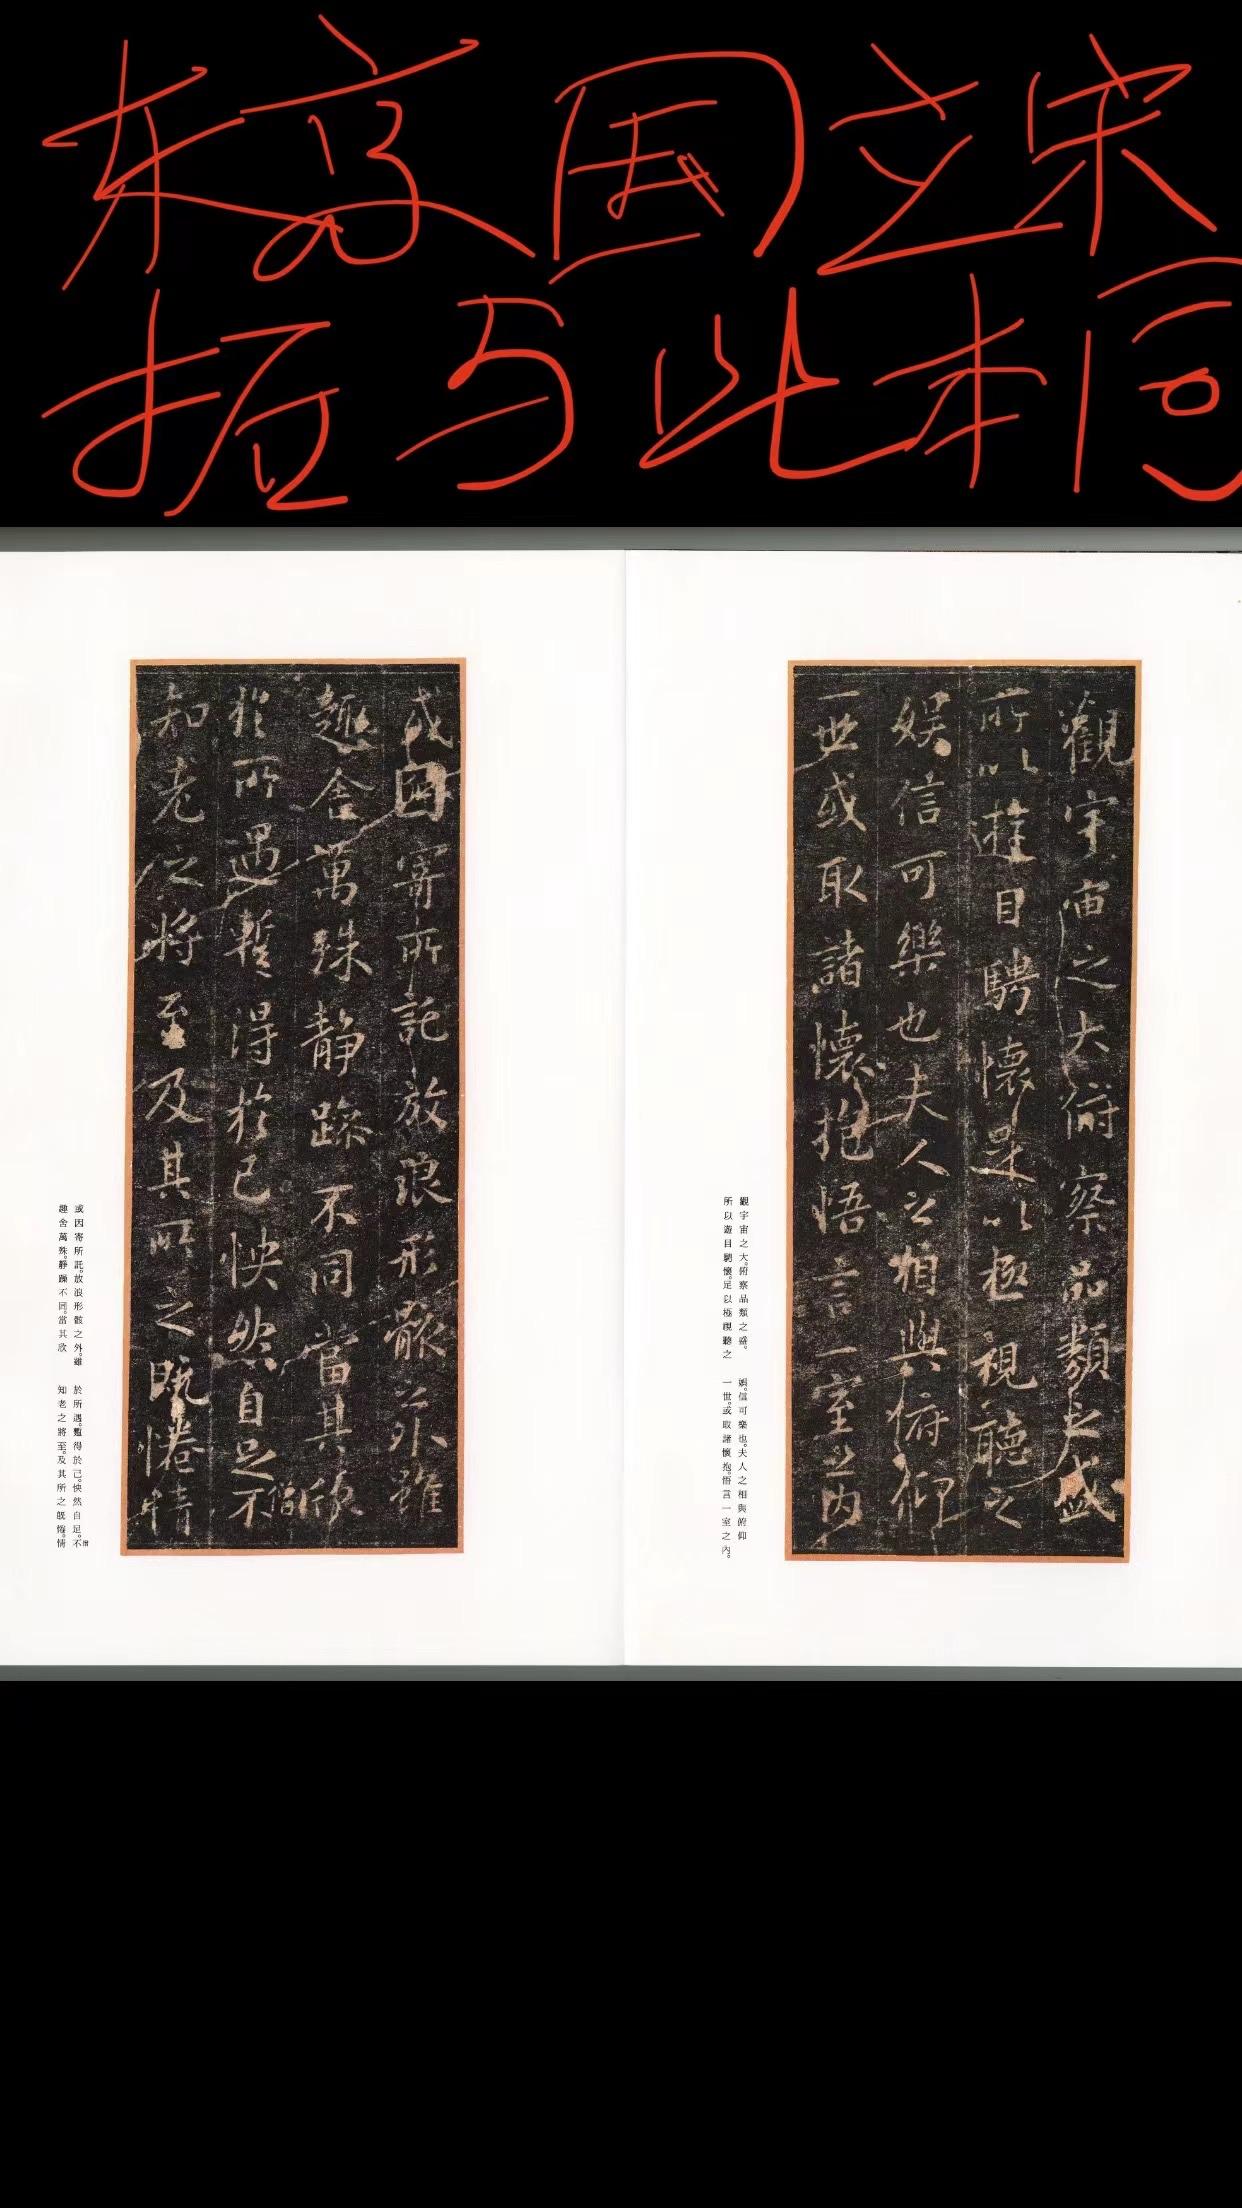 东京国立宋
拓与此本同
觀宇宙之大俯察品類之盛
所以遊目騁懷足以極視聽之
娛信可樂也夫人之相與俯仰
一世或取諸懷抱悟言一室之内
觀宇宙之大。俯察品類之盛。
所以遊目騁懷。足以極視聽之
娛。信可樂也。夫人之相與俯仰
一世。或取諸懷抱。悟言一室之內。
或因寄所託放浪形骸之外雖
趣舍萬殊静躁不同當其欣
於所遇暫得於己怏然自足不
僧
知老之將至及其所之既惓情
或因寄所託。放浪形骸之外。雖
趣舍萬殊。靜躁不同。當其欣
於所遇。蹔得於己。怏然自足。不
僧
知老之將至。及其所之既惓。情